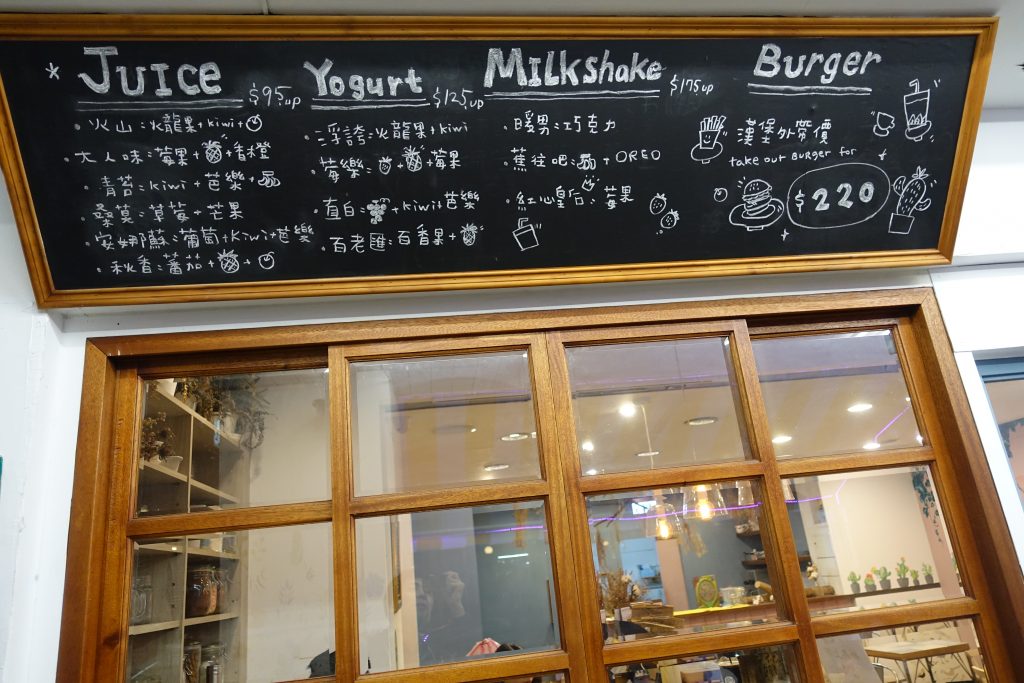 * Juice $95up
• 火山:火龍果+kiwi+
• 大人味:莓果+ +香橙
• 青苔:kiwi+芭樂+
• 桑莫:草莓+芒果
• 安娜蘇:葡萄+kiwi+芭樂
• 秋香:蕃茄+ +
Yogurt $125up
• 浮誇:火龍果+kiwi
• 莓樂: + +莓果
• 直白: +kiwi+芭樂
• 百老匯:百香果+
Milkshake $175up
• 暖男:巧克力
• 蕉往吧: +OREO
• 紅心皇后:莓果
Burger
漢堡外帶價
take out BURGER for
$220